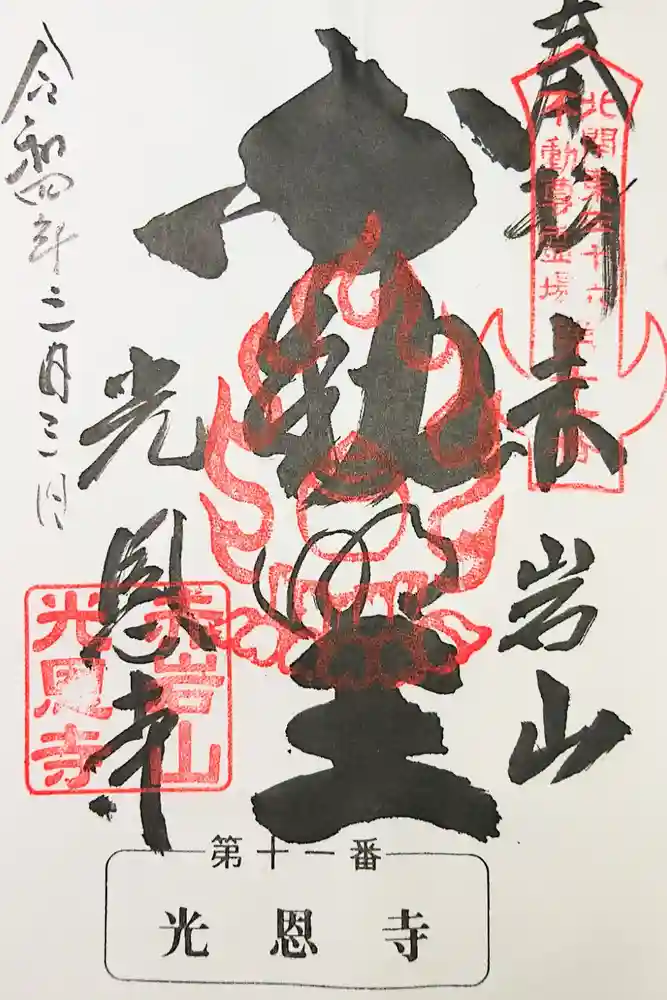 奉拝
赤岩山
不動明王
光恩寺
令和四年三月三日
北関東三十六
不動尊霊場
赤岩山
光恩寺
第十一番
光恩寺